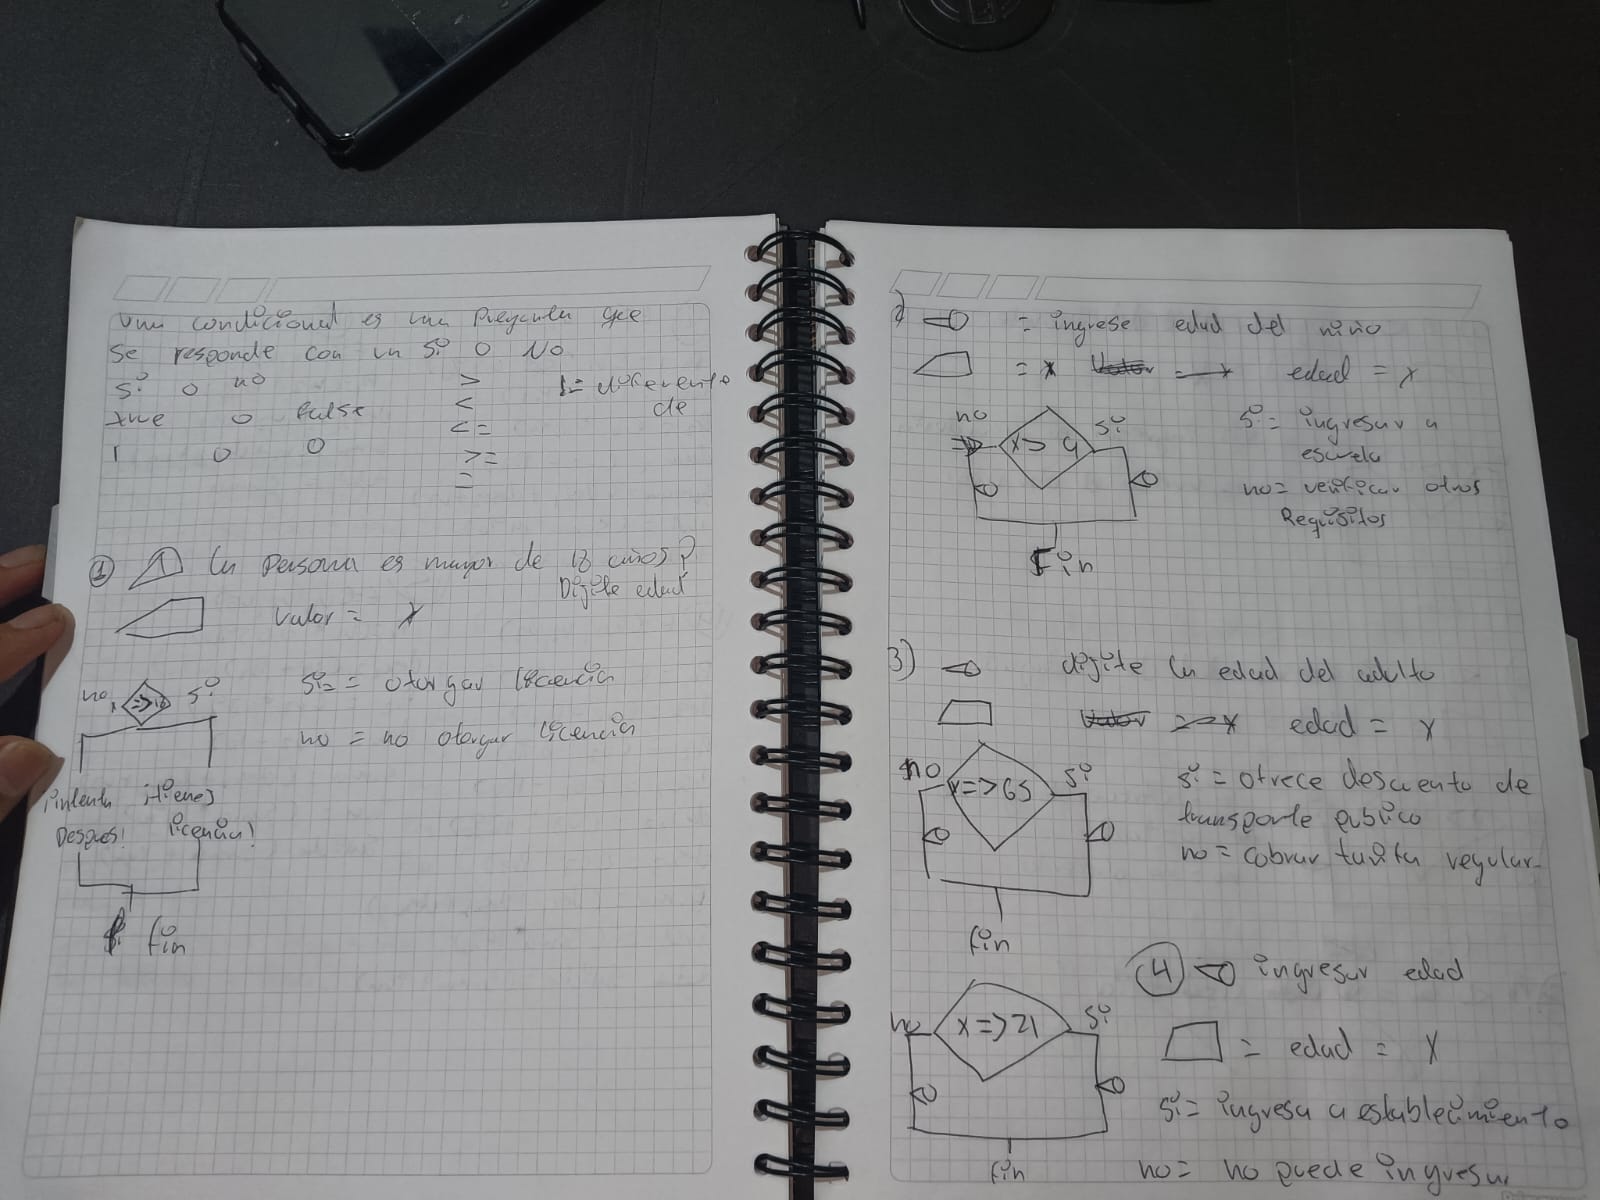 una condicional es una pregunta que
se responde con un si o No
si o no
true o false
1 o 0
>
<
<=
>=
=
!= diferente
de
① La Persona es mayor de 18 años?
Digite edad
valor = x
no x =>18 si
si = otorgar licencia
no = no otorgar licencia
¡intenta
Despues!
¡tienes
licencia!
fin
= ingrese edad del niño
= x Valor → edad = x
no x > 4 si
si = ingresar a
escuela
no = verificar otros
Requisitos
Fin
3) digite la edad del adulto
Valor = x edad = x
no x=>65 si
si = ofrece descuento de
transporte publico
no = cobrar tarifa regular
fin
④ ingresar edad
= edad = x
no x=>21 si
si = ingresa a establecimiento
no = no puede ingresar
fin